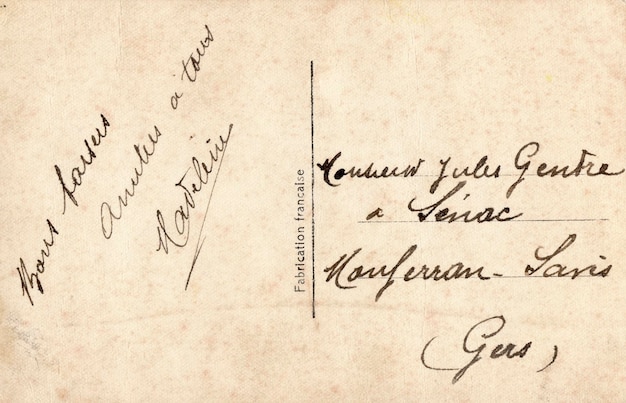 Bons baisers
Amitiés à tous
Madeleine
Fabrication francaise
Monsieur Jules Gendre
a Sénac
Monferran-Savès
(Gers)